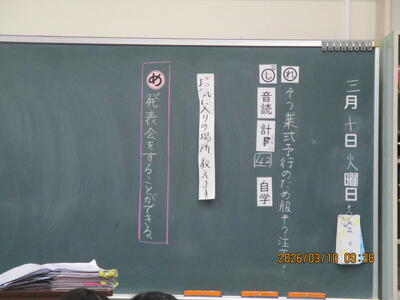 三月十日火曜日
れ そつ業式予行のため服そう注意!
し 音読 計ド 42 自学
お気に入りの場所 教えます
め 発表会をすることができる。
2026/03/10 09:38